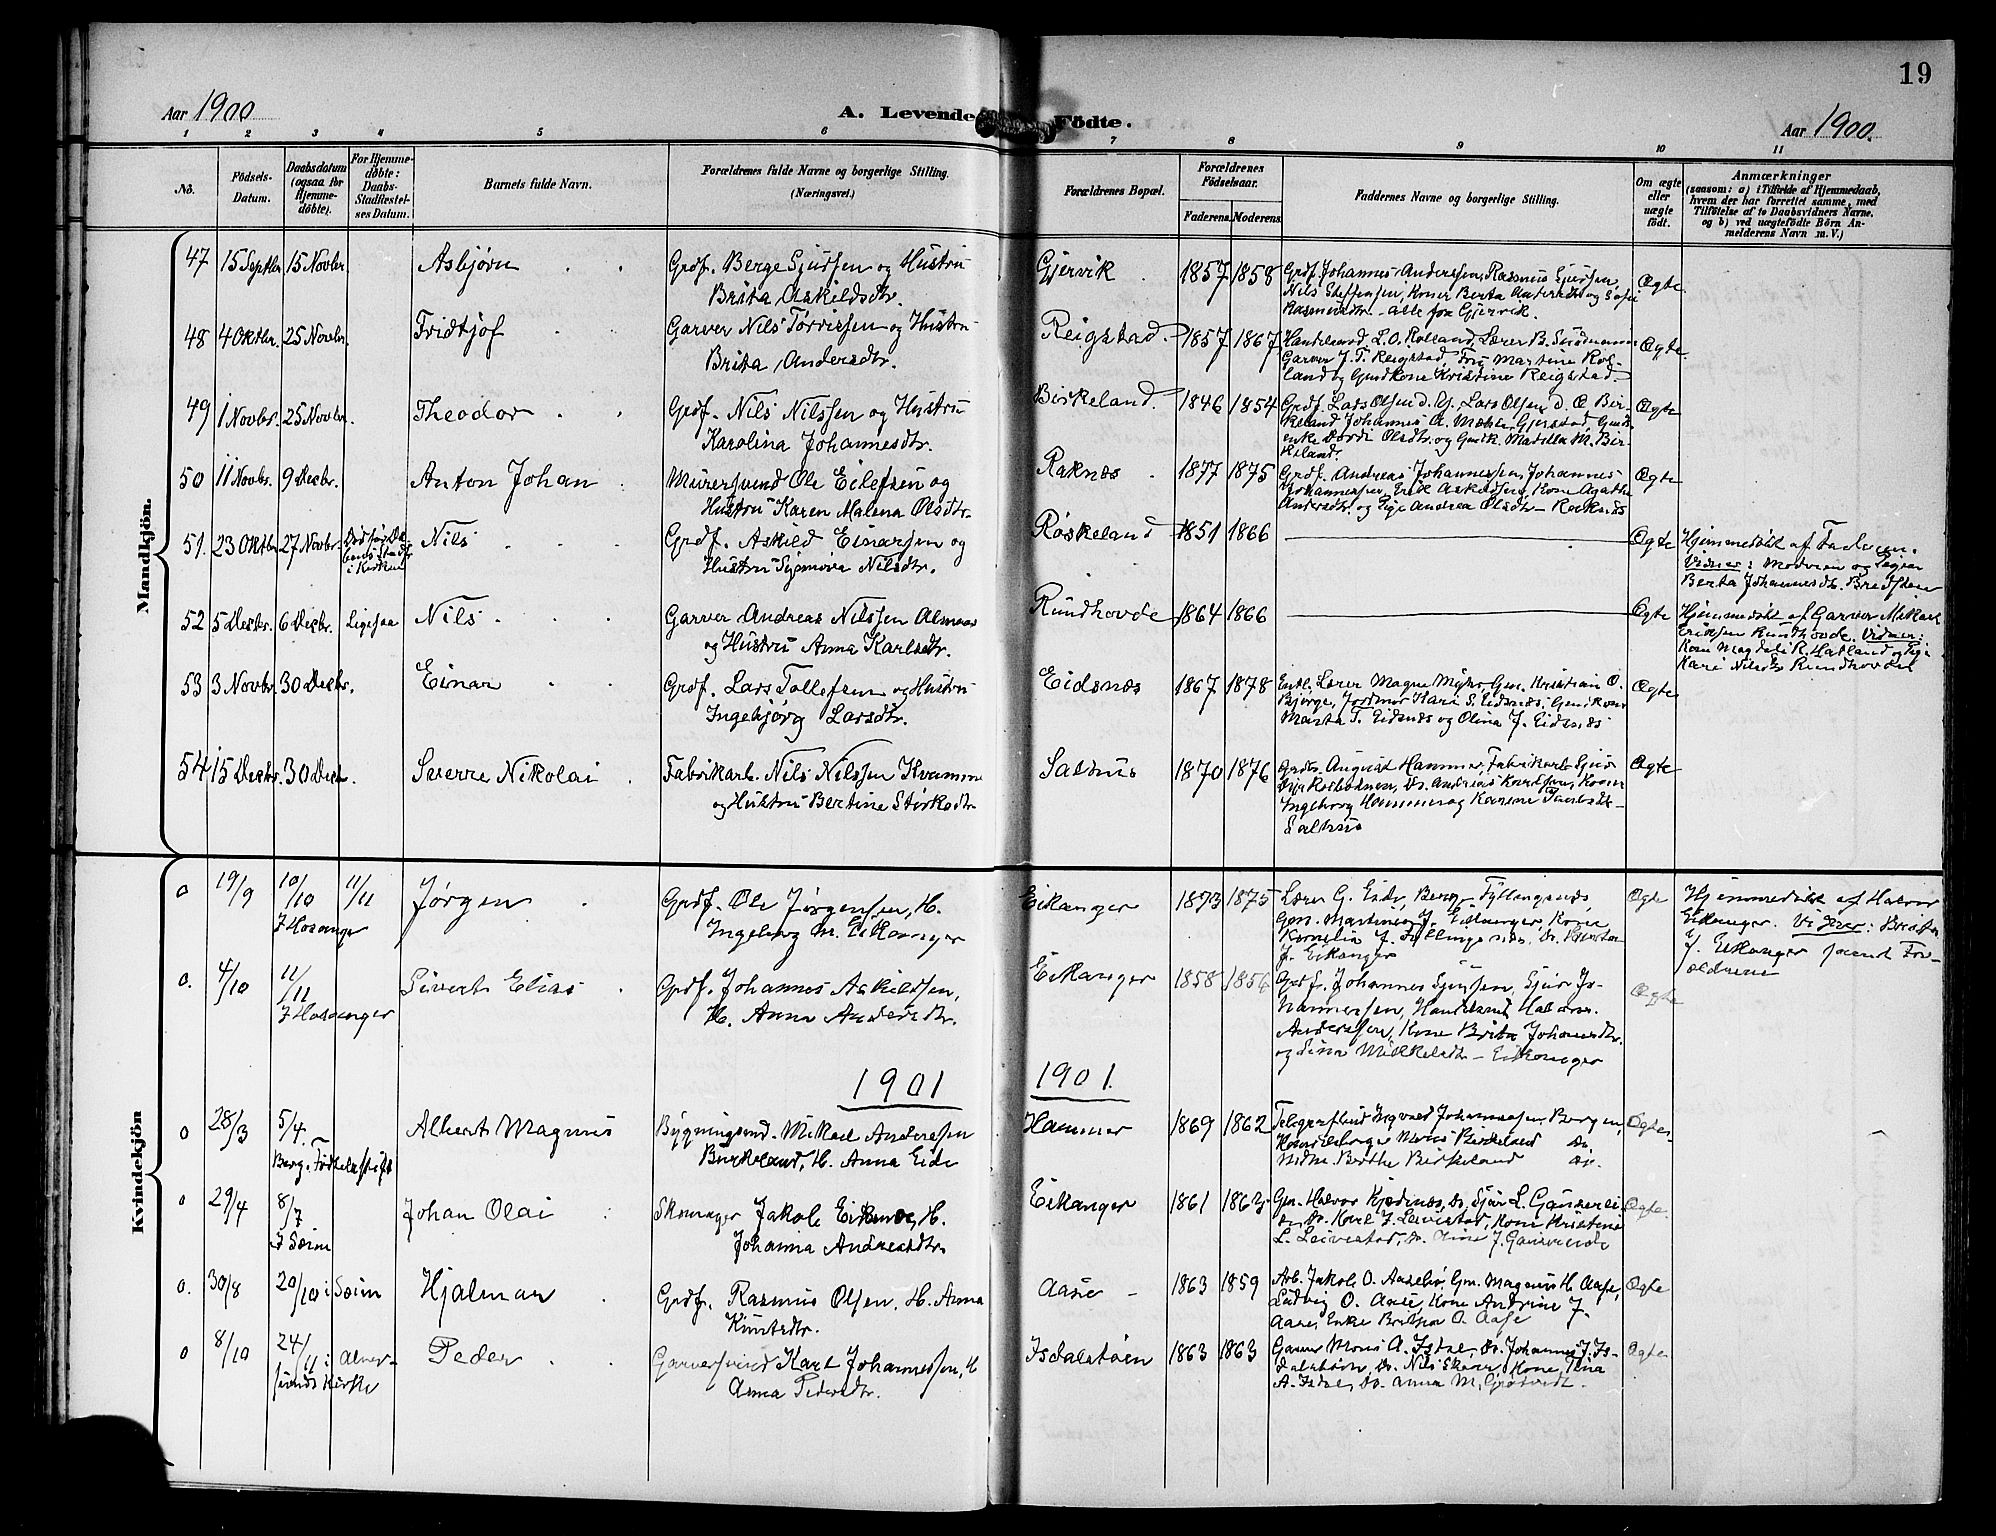 19
Aar 1900
A. Levende Födte.
Aar 1900.
1 2 3 4 5 6 7 8 9 10 11
No.
Födsels-Datum.
Daabsdatum (ogsaa for Hjemmedöbte).
For Hjemmedöbte: Daabs-Stadfestelses Datum.
Barnets fulde Navn.
Forældrenes fulde Navne og borgerlige Stilling.
(Næringsvei.)
Forældrenes Bopæl.
Forældrenes Födselsaar.
Faderens. Moderens.
Faddernes Navne og borgerlige Stilling.
Om ægte eller uægte født.
Anmærkninger
(saasom: a) i Tilfælde af Hjemmedaab,
hvem der har forrettet samme, med
Tilföielse af to Daabsvidners Navne,
og b) ved uægtefödte Börn An-
melderens Navn m. V.)
Mandkjön.
47 15 Septbr. 15 Novbr. Asbjørn Grdf. Berge Sjursen og Hustru Gjervik 1857 1858 Grdf. Johannes Anderssen, Rasmus Sjursen, Ægte
Brita Askildsdtr. Nils Steffensen, Koner Berta Andersdtr og
Rasmusdtr. alle fra Gjervik.
48 4 Oktbr. 25 Novbr. Fridtjof Garver Nils Torrissen og Hustru Reigstad. 1857 1867 L. O. Rolland, Lærer B. Ægte.
Brita Andersdtr. Garver J. T. Reigstad, Frú Martine Rol-
land og Gmdkone Kristine Reigstad.
49 1 Novbr. 25 Novbr. Theodor Grdf. Nils Nilssen og Hustru Birkeland. 1846 1854 Grdf. Lars Olsen d. Y., Lars Olsen d. Æ. Bir- Ægte
Karolina Johannesdtr. keland, Johannes A.
enke Dordi Olsdtr. og M. Bir-
keland.
50 11 Novbr. 9 Decbr. Anton Johan Murersvend Ole Eilefsen og Raknæs 1877 1875 Grdf. Andreas Johannessen, Johannes Ægte
Hustru Karen Malena Olsdtr. Johannessen, Erik Askildsen, Kone Agathe
Andersdtr. og Pige Andrea Olsdtr – Raknæs
51. 23 Oktbr 27 Novbr. Nils Grdf. Askild Einarsen og Røskeland 1851 1866 Ægte Hjemmedøbt af Faderen.
i Kirken Hustru Nilsdtr. Vidner: Moderen og Pigen
Berta Johannesdtr.
52 5 Decbr. 6 Decbr. Ligesaa Nils Garver Andreas Nilssen Almaas Rundhovde 1864 1866 Ægte Hjemmedøbt af Garver Mikael
og Hustru Anna Karlsdtr. Eriksen Rundhovde. Vidner:
Kone Magdeli R. Hatland og Pige
Kari Nilsdtr Rundhovde
53 3 Novbr. 30 Decbr. Einar Grdf. Lars Tollefsen og Hustru Eidsnæs 1867 1878 Lærer Magne Gm. Kristian O. Ægte
Ingebjørg Larsdtr. Bjørge, Jordmor Kari S. Eidsnæs,
Marta T. Eidsnæs og Olina J. Eidsnæs
54 15 Decbr. 30 Decbr. Sverre Nikolai Fabrikarb. Nils Nilssen Kvamme Salhus 1870 1876 August Hammer, Fabrikarb. Sjur Ægte
og Hustru Bertine Styrksdtr. Do. Andreas Koner
Ingeborg Hammer og Karene
Salhus
Kvindekjön
0 19/9 10/10 11/11 Jørgen Grdf. Ole Jørgensen, H. Eikanger 1873 1875 Lærer G. Eide, Ægte Hjemmedøbt af Halvor
I Hosanger Ingeborg M. Eikanger Gm. Martinus J. Eikanger, Kone Eikanger. Vidner:
Kornelia J. J. Eikanger samt For-
J. Eikanger ældrene
0. 4/10 11/11 Sivert Elias Grdf. Johannes Askildsen, Eikanger 1858 1856 Grdf. Johannes Sjursen, Sjur Jo- Ægte
I Hosanger H. Anna Andersdtr. hannessen, Halvor
Anderssen, Kone Brita Johannesdtr.
og Sina Mikkelsdtr – Eikanger
1901 1901.
0 28/3 5/4. Albert Magnus Bygningsmd. Mikael Anderssen Hammer 1869 1862 Ingvald Johannessen, Bergen, Ægte
Berg. Fødselsstift Birkeland, H. Anna Eide Mons Birkeland Do
Berthe Birkeland do.
0 29/4 8/7 Johan Olai Skomager Jakob H. Eikanger 1861 1863 Gm. Halvor Do. Sjur L. Ægte.
I Seim Johanna Andreasdtr. Do. Karl J. Leivestad, Kone Kristine
L. Leivestad, Do. J.
0. 30/8 20/10 i Seim Hjalmar Grdf. Rasmus Olsen, H. Anna Aase 1863 1859 Arb. Jakob O. Gm. Magnus H. Aase, Ægte
Knutsdtr. Ludvig O. Aase, Kone Andrine J.
Aase, Enke O. Aase
0 8/10 24/11 i Alver- Peder Garversvend Karl Johannessen, H Isdalstøen 1863 1863 Garver Mons A. Isdal, Do. Johannes J. Is- Ægte
sunds Kirke Anna Pedersdtr. dalstøen, Do. Nils Kone
A. Isdal, Do. Anna M.